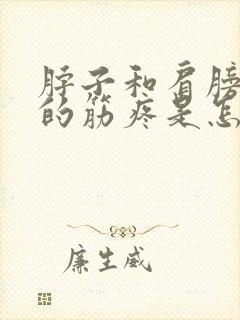 脖子和肩膀
的筋疼是怎
廉生威